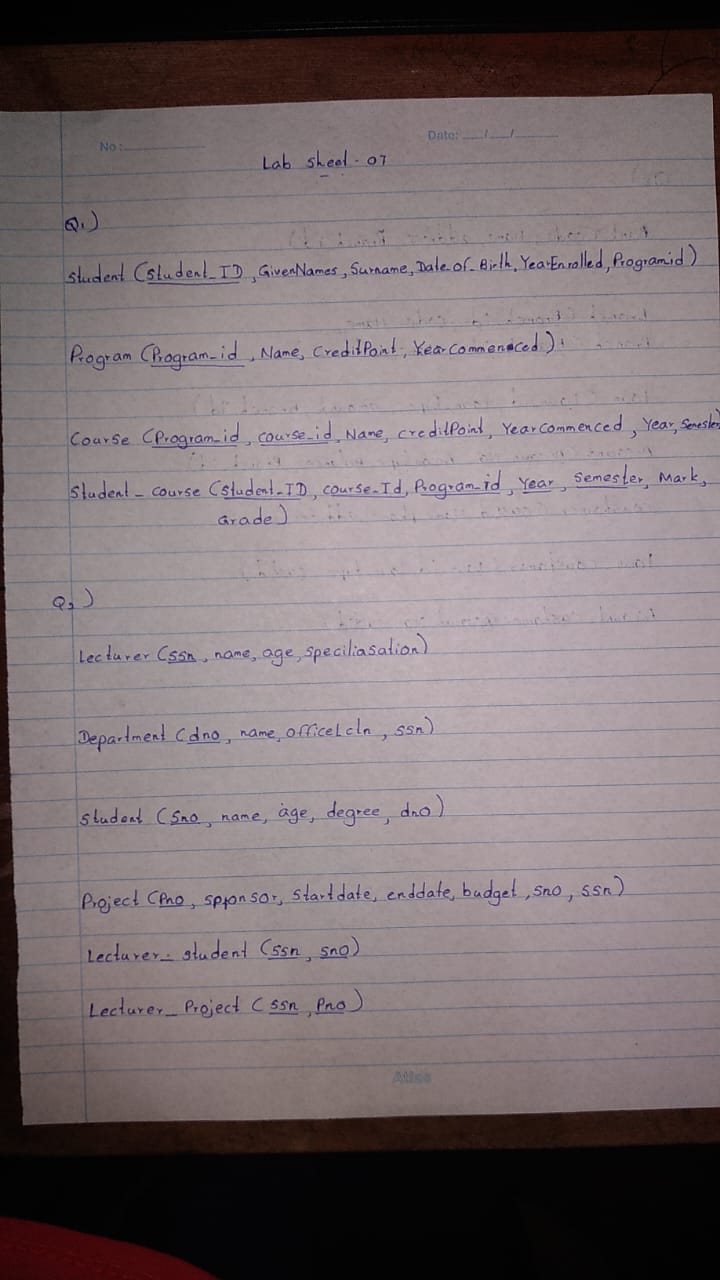 No:
Date: / /
Lab sheet - 07
Q1)
Student (Student_ID, GivenNames, Surname, Date_of_Birth, YearEnrolled, Programid)
Program (Program_id, Name, CreditPoint, YearCommenced)
Course (Program_id, course_id, Name, creditPoint, YearCommenced, Year, Semester
Student - course (Student-ID, course-Id, Program_id, Year, Semester, Mark,
Grade)
Q2)
Lecturer (ssn, name, age, speciliasation)
Department (dno, name, officeLctn, ssn)
Student (Sno, name, age, degree, dno)
Project (Pno, sponsor, Startdate, enddate, budget, sno, ssn)
Lecturer - student (ssn, sno)
Lecturer_Project (ssn, Pno)
Atlas